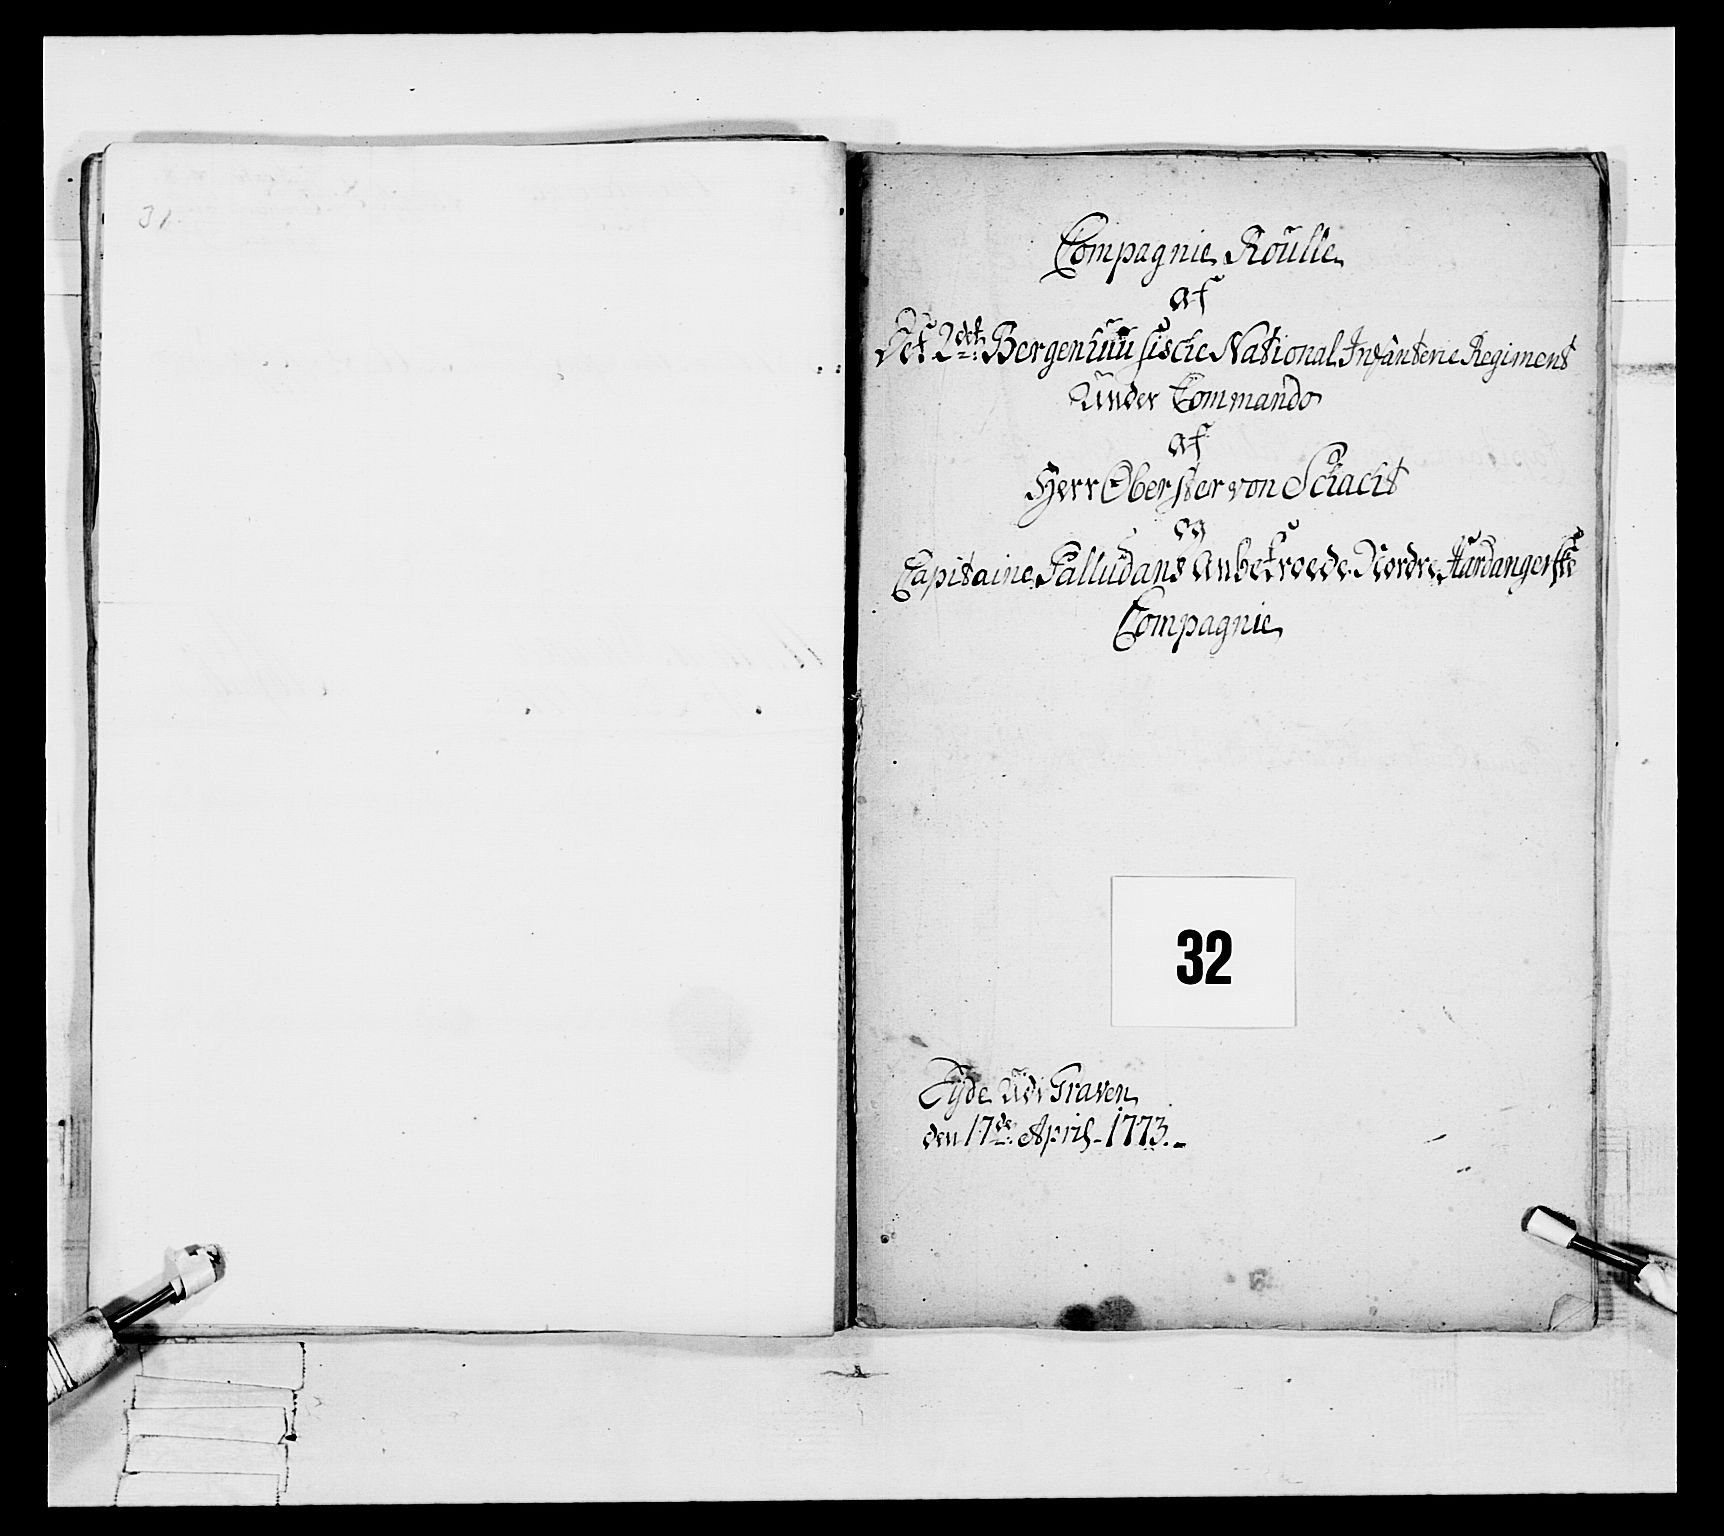 31.
Compagnie Roulle
af
Det 2det Bergenhuusische National Infanterie Regiment
Under Commando
af
Herr Oberster von Schacht
og
Capitaine Palludans Anbetroede Nordre Hardangerske
Compagnie
32
Eyde Udi Graven
den 17de April 1773.